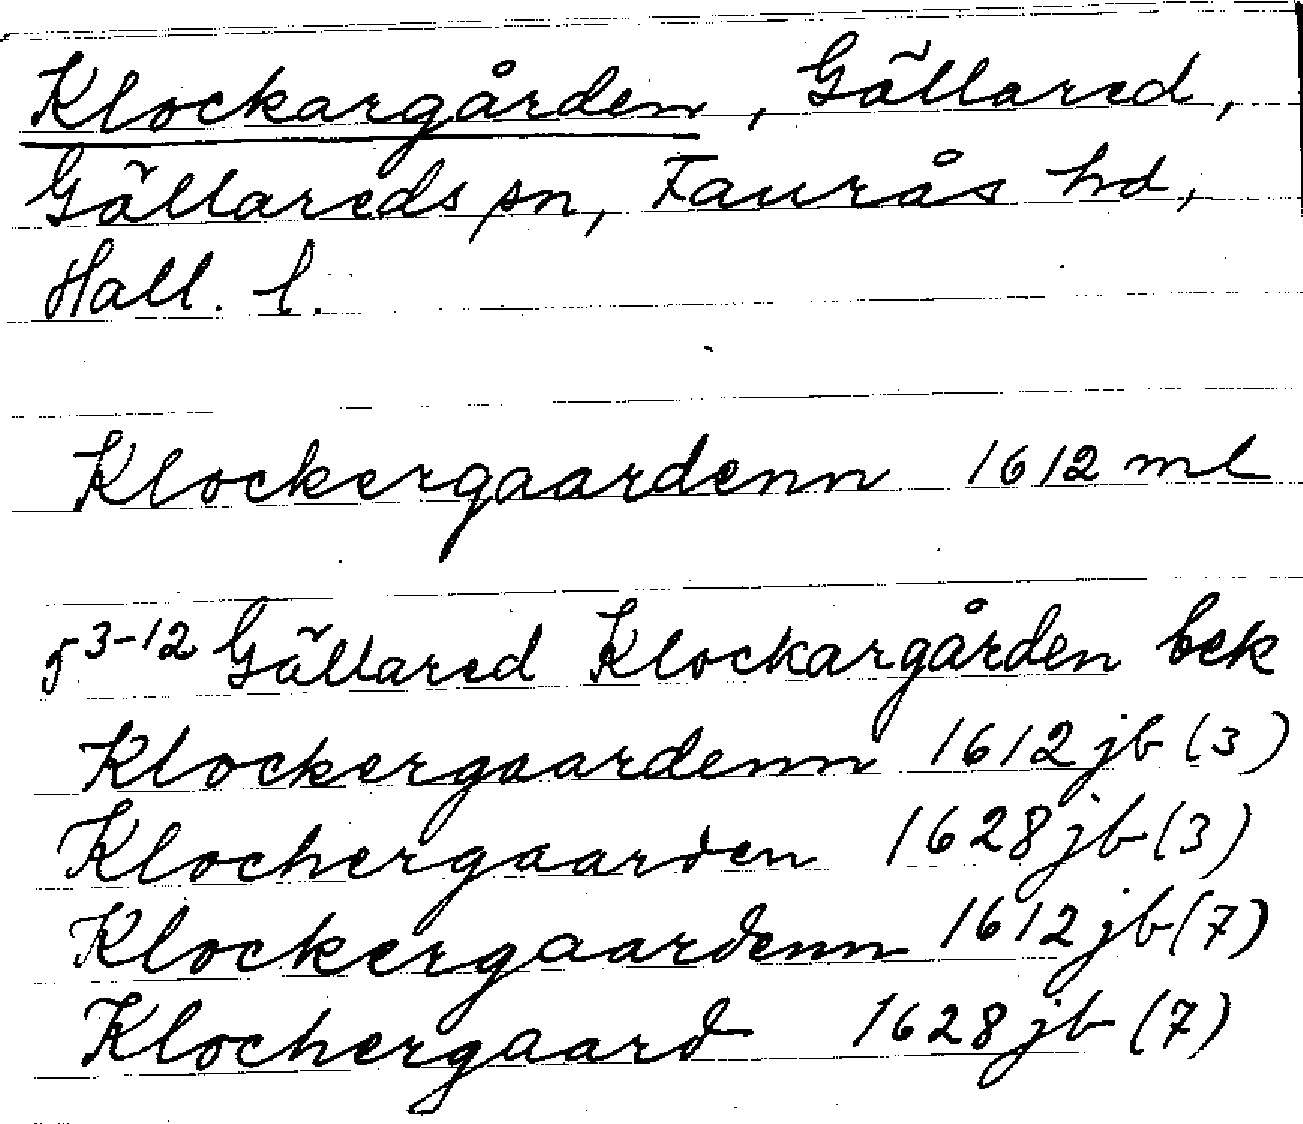 Klockargården, Gällared,
Gällareds sn, Faurås hd,
Hall. l.
Klockergaardenn 1612 ml
5³⁻¹² Gällared Klockargården bek
Klockergaardenn 1612 jb (3)
Klochergaarden 1628 jb (3)
Klockergaardenn 1612 jb (7)
Klochergaard 1628 jb (7)